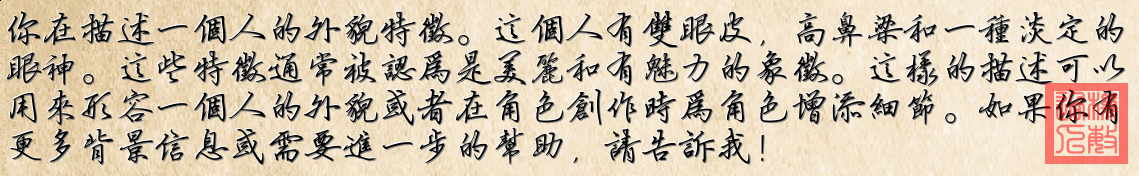 你在描述一個人的外貌特徵。這個人有雙眼皮，高鼻梁和一種淡定的
眼神。這些特徵通常被認為是美麗和有魅力的象徵。這樣的描述可以
用來形容一個人的外貌或者在角色創作時為角色增添細節。如果你有
更多背景信息或需要進一步的幫助，請告訴我！